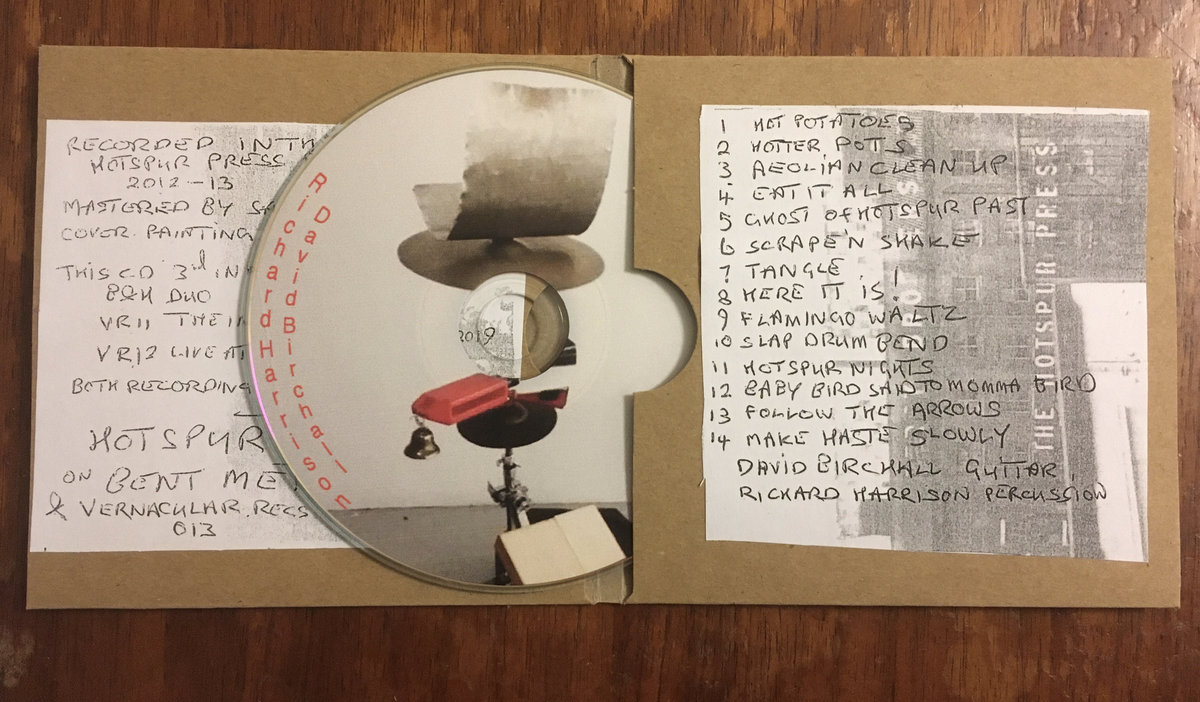 RECORDED IN TH
HOTSPUR PRESS
2012-13
MASTERED BY
COVER PAINTING
THIS CD 3rd IN
B&H DUO
VR11 THE
VR12 LIVE AT
BOTH RECORDING
HOTSPUR
ON BENT ME
& VERNACULAR.RECS
013
David Birchall
Richard Harrison
2019
1 HOT POTATOES
2 HOTTER POTS
3 AEOLIAN CLEAN UP
4 EAT IT ALL
5 GHOST OF HOTSPUR PAST
6 SCRAPE'N SHAKE
7 TANGLE
8 HERE IT IS!
9 FLAMINGO WALTZ
10 SLAP DRUM BEND
11 HOTSPUR NIGHTS
12 BABY BIRD SAID TO MOMMA BIRD
13 FOLLOW THE ARROWS
14 MAKE HASTE SLOWLY
DAVID BIRCHALL GUITAR
RICHARD HARRISON PERCUSSION
THE HOTSPUR PRESS